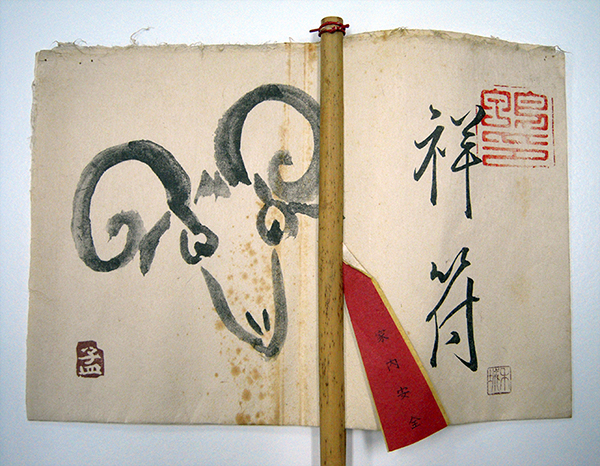 祥符
家内安全
孟